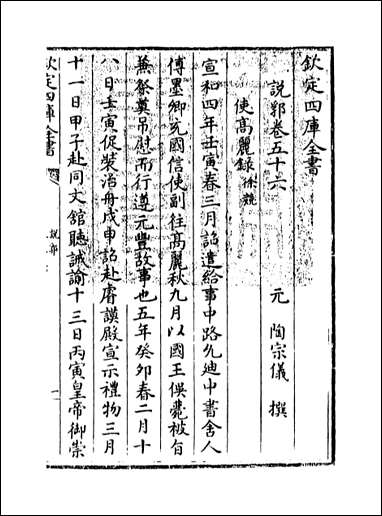 欽定四庫全書
說郛卷五十六
元 陶宗儀 撰
使高麗錄 徐兢
宣和四年壬寅春三月詔遣給事中路允迪中書舍人
傅墨卿充國信使副往高麗秋九月以國王俁薨被旨
兼祭奠吊慰而行遵元豐故事也五年癸卯春二月十
八日壬寅促裝治舟戊申詔赴睿謨殿宣示禮物三月
十一日甲子赴同文館聽誡諭十三日丙寅皇帝御崇
欽定四庫全書
說郛
一